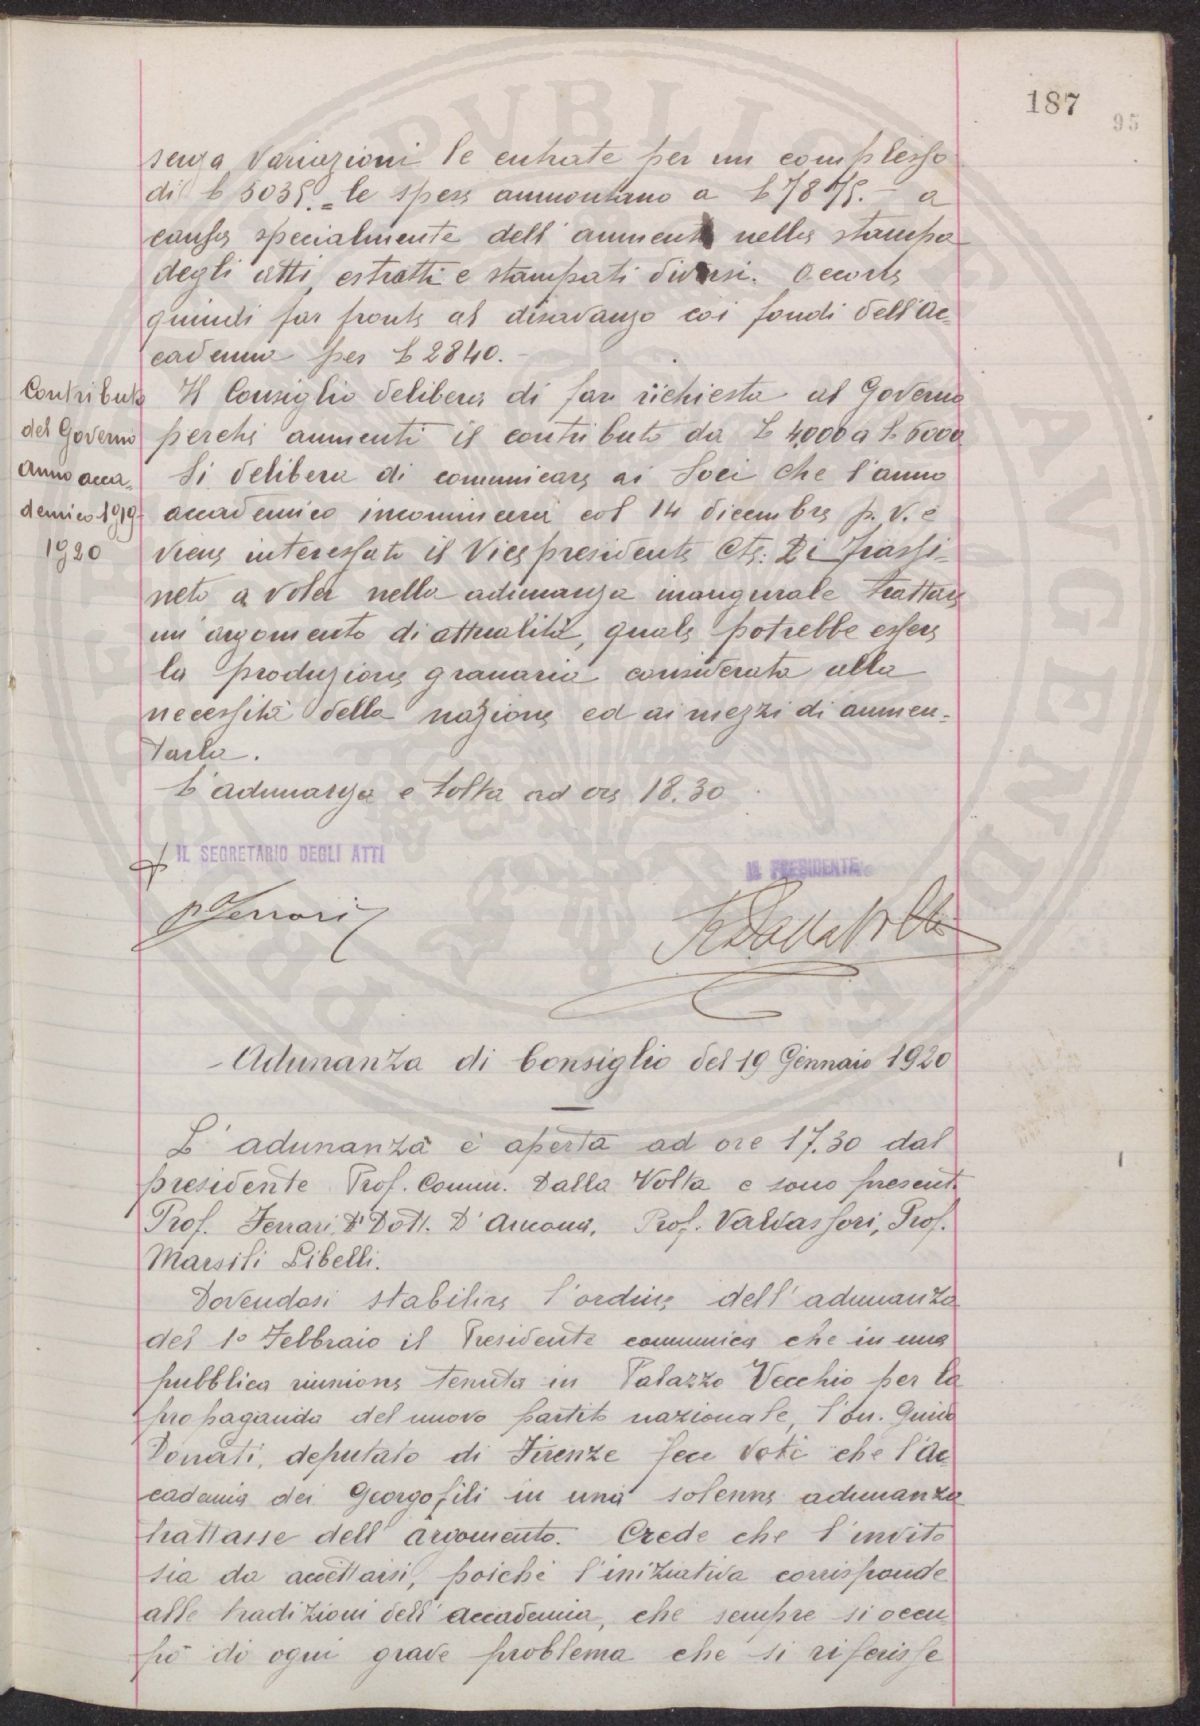 187
95
senza variazioni le entrate per un complesso
di £ 5035.= le spese ammontano a £ 7875.- a
causa specialmente dell'aumento nella stampa
degli atti, estratti e stampati diversi. Occorre
quindi far fronte al disavanzo coi fondi dell'Ac-
cademia per £ 2840.-
Contributo
del Governo
Il Consiglio delibera di fare richiesta al Governo
perché aumenti il contributo da £ 4000 a £ 6000
Anno acca-
demico 1919-
1920
Si delibera di comunicare ai Soci che l'anno
accademico incomincerà col 14 dicembre p. v. e
viene interessato il Vice presidente Cte. Di Frassi-
neto a voler nella adunanza inaugurale trattare
un argomento di attualità, quale potrebbe essere
la produzione granaria considerata alla
necessità della nazione ed ai mezzi di aumen-
tarla.
L'adunanza e tolta ad ore 18.30
IL SEGRETARIO DEGLI ATTI
IL PRESIDENTE
P. Ferrari
R Dalla Volta
- Adunanza di Consiglio del 19 Gennaio 1920
L'adunanza è aperta ad ore 17.30 dal
presidente Prof. Comm. Dalla Volta e sono presenti
Prof. Ferrari, Dott. D'Ancona, Prof. Valvassori, Prof.
Marsili Libelli.
Dovendosi stabilire l'ordine dell'adunanza
del 1º Febbraio il Presidente comunica che in una
pubblica riunione tenuta in Palazzo Vecchio per la
propaganda del nuovo partito nazionale, l'on. Guido
Donati, deputato di Firenze fece voti che l'Ac-
cademia dei Georgofili in una solenne adunanza
trattasse dell'argomento. Crede che l'invito
sia da accettarsi, poiché l'iniziativa corrisponde
alle tradizioni dell'accademia, che sempre si occu-
pò di ogni grave problema che si riferisse